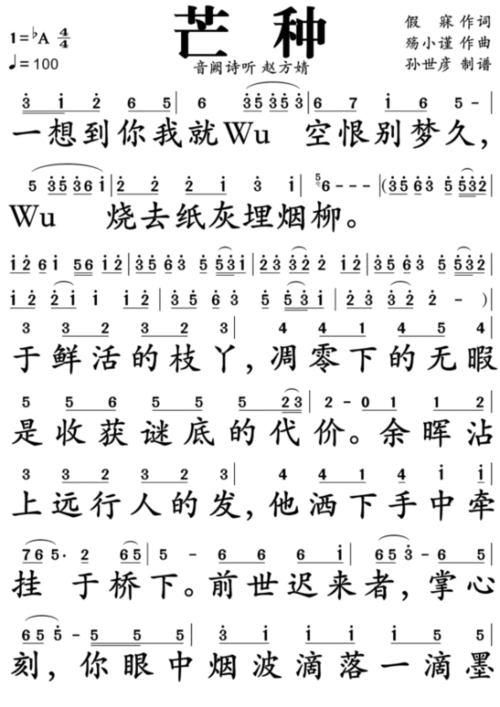 芒种
1=♭A 4/4
♩=100
音阙诗听 赵方婧
假寐 作词
殇小谨 作曲
孙世彦 制谱
3 1 2 6 5 | 6 35353 | 6 7 1 6 5 - |
一想到你我就Wu 空恨别梦久，
5 35361 | 2 2 1 3 1 | 5 6 - - - | (35 63 5 532 |
Wu 烧去纸灰埋烟柳。
12 61 56 12 | 35 63 5 531 | 23 32 2 12 | 35 63 5 532 |
12 21 1 12 | 35 63 5 531 | 23 32 2 - ) |
3 3 2 3 2 3 | 4 4 1 4 5 4 |
于鲜活的枝丫，凋零下的无暇
5 5 6 5 5 5 23 | 2 - 0 1 1 2 |
是收获谜底的代价。余晖沾
3 3 2 3 2 3 | 4 4 1 4 1 1 |
上远行人的发，他洒下手中牵
765· 2 65 | 5 - 6 6 6 1 | 65 3 - 6 5 |
挂 于桥下。前世迟来者，掌心
6 5 5 - 5 5 5 | 3 1 1 1 1 5 5 |
刻，你眼中烟波滴落一滴墨